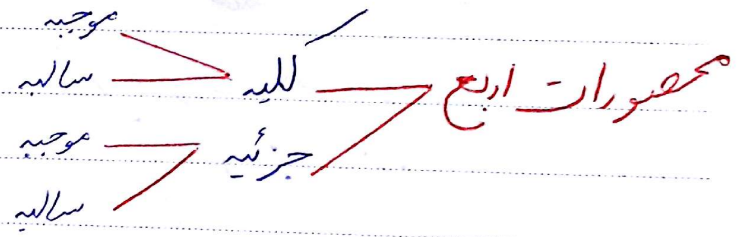 محصورات اربع
کلیه
موجبه
سالبه
جزئیه
موجبه
سالبه